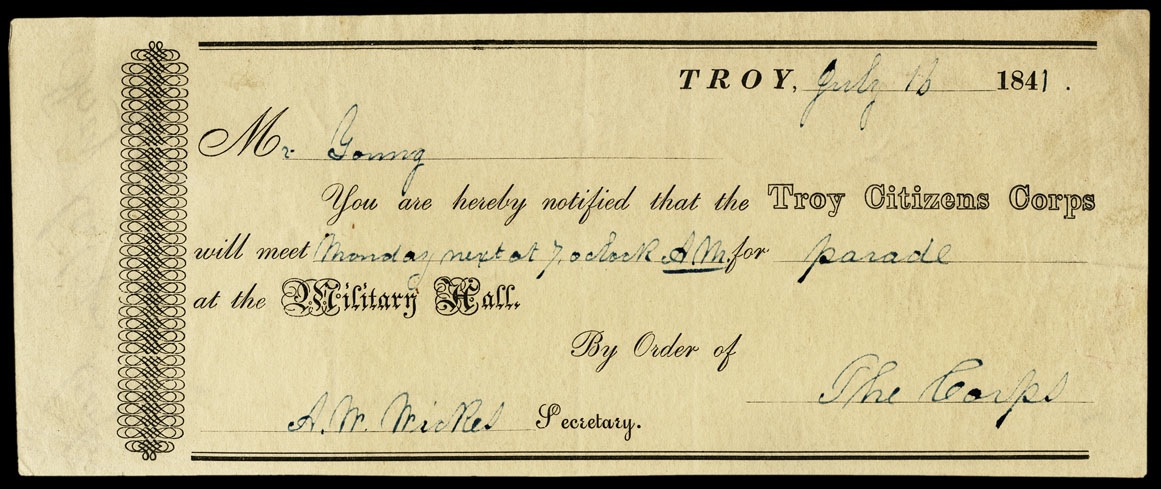 TROY, July 16 1841.
Mr Young
You are hereby notified that the Troy Citizens Corps
will meet Monday next at 7, oclock A M. for parade
at the Military Hall.
By Order of
The Corps
A. W. Wickes Secretary.